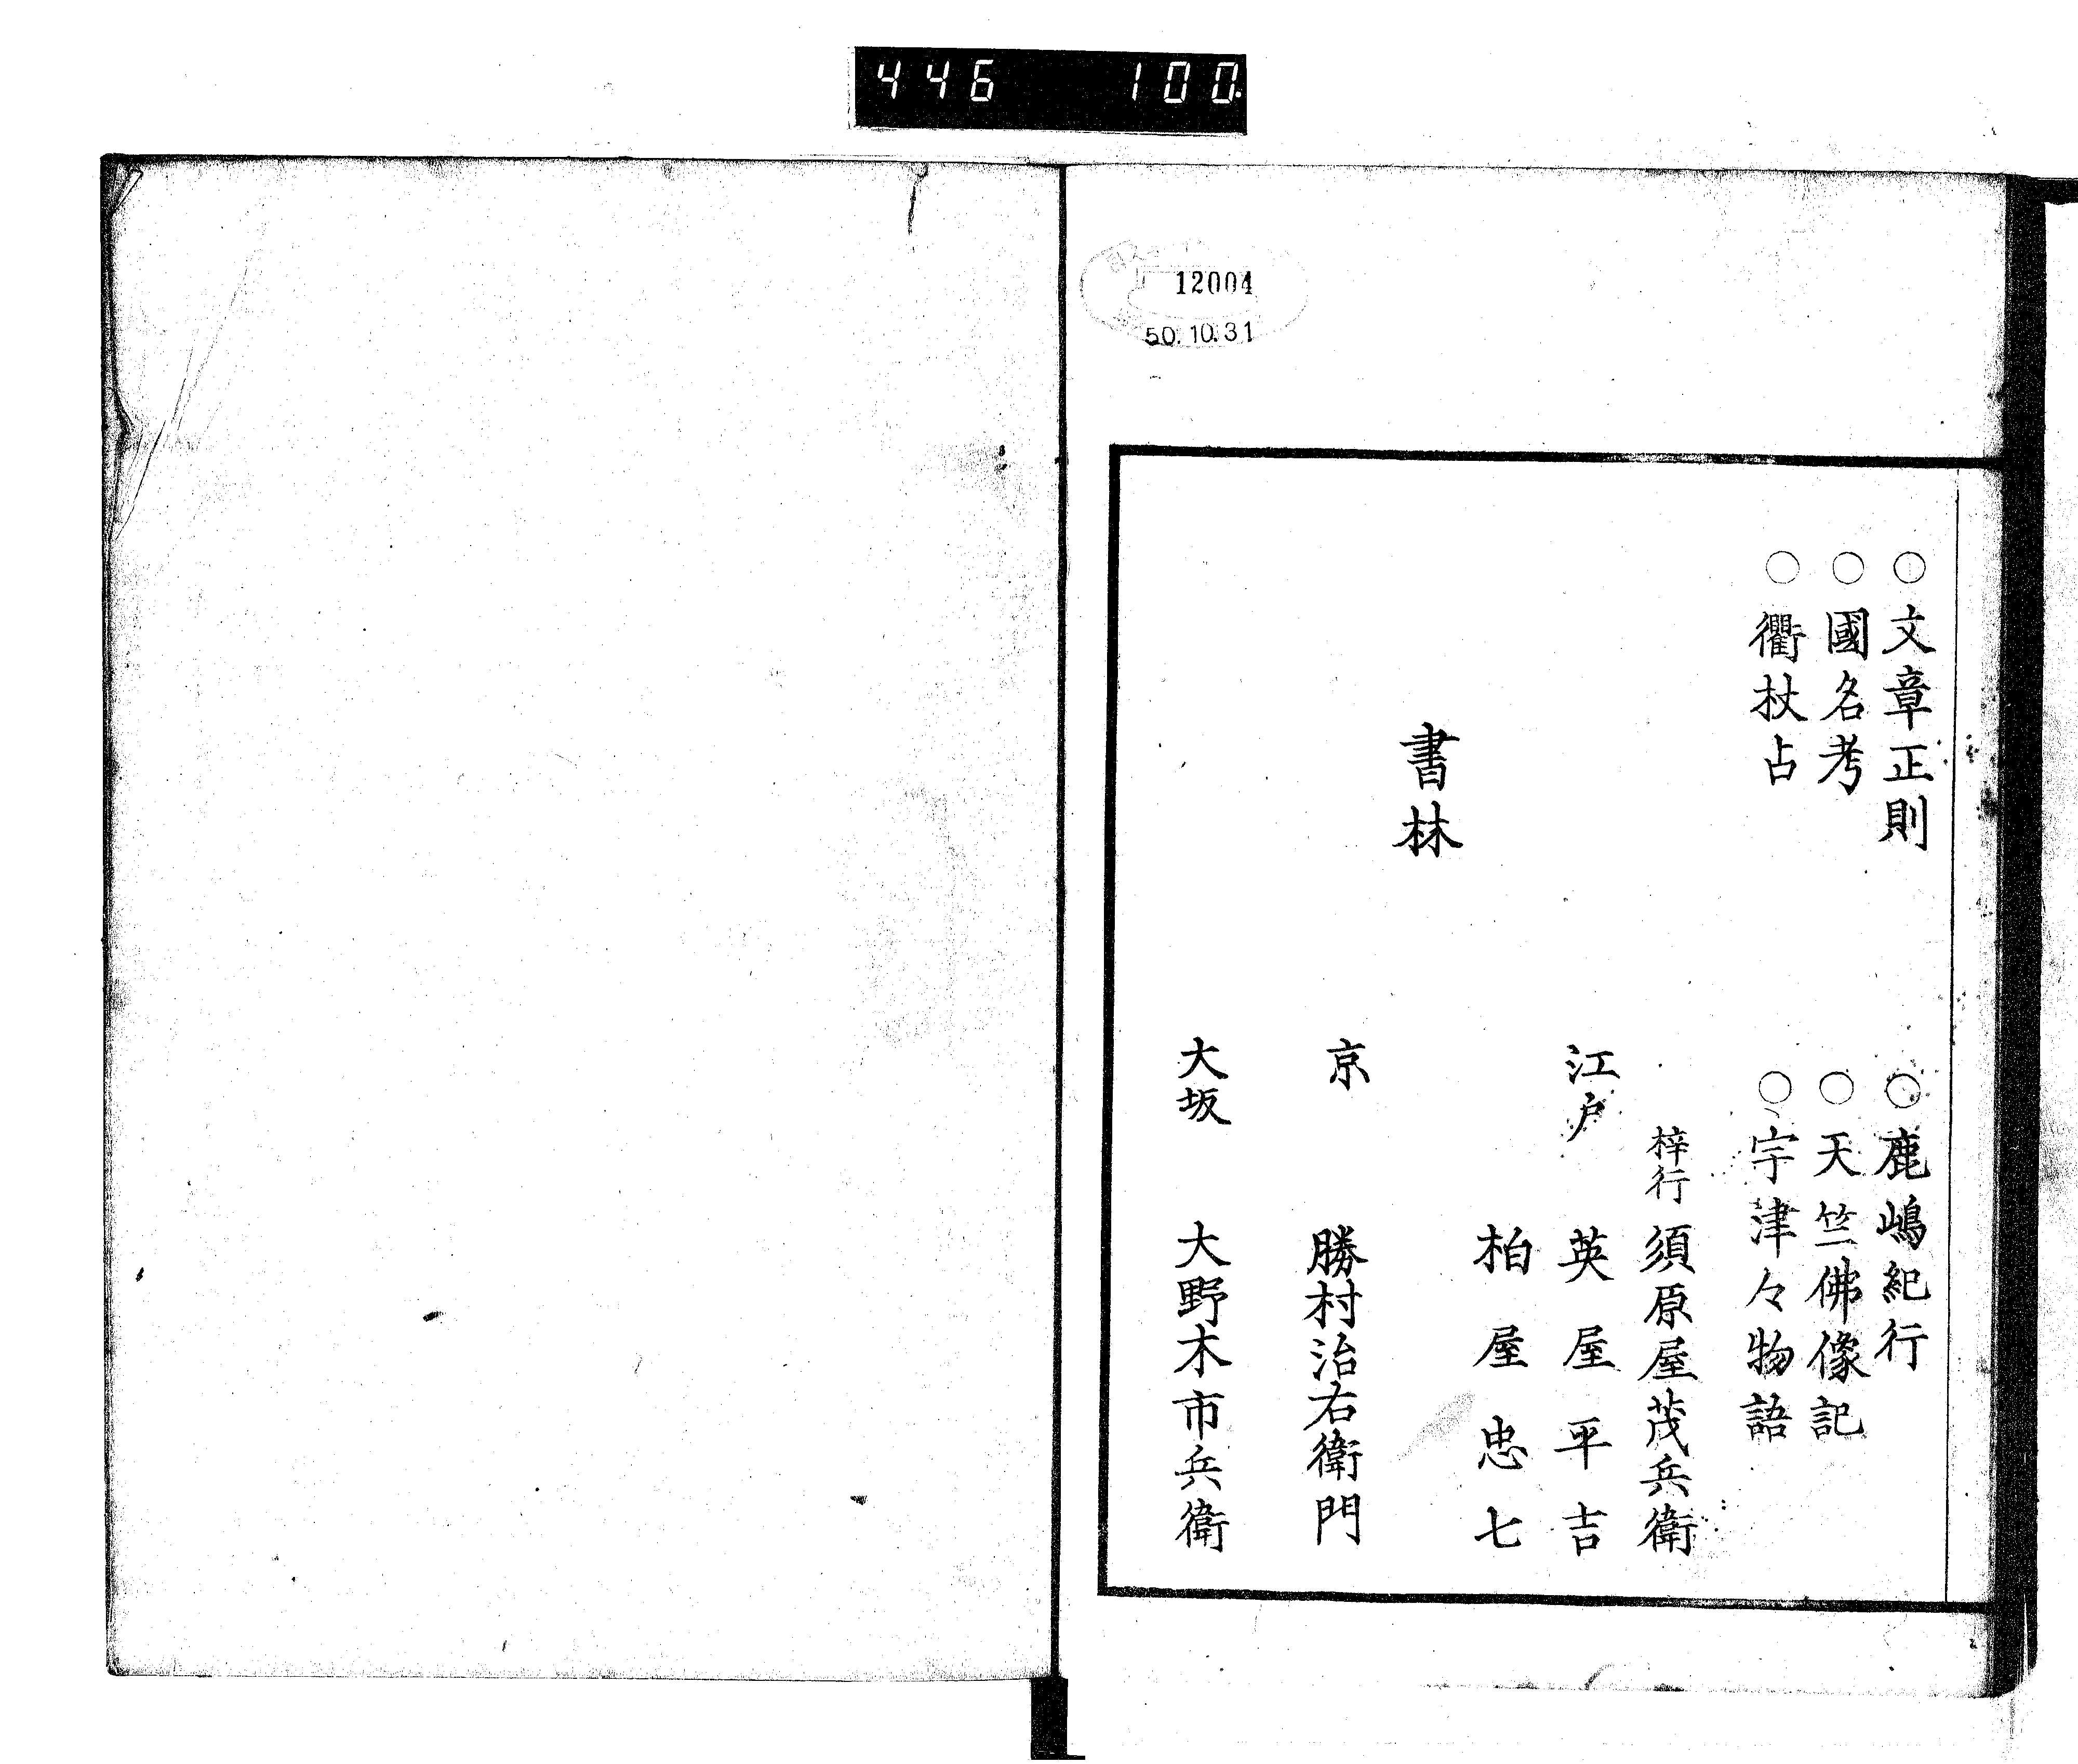 446 100.
12004
50.10.31
○文章正則 ○鹿嶋紀行
○國名考 ○天竺佛像記
○衢杖占 ○宇津々物語
梓行 須原屋茂兵衛
江戸 英屋平吉
柏屋忠七
書林
京 勝村治右衛門
大坂 大野木市兵衛